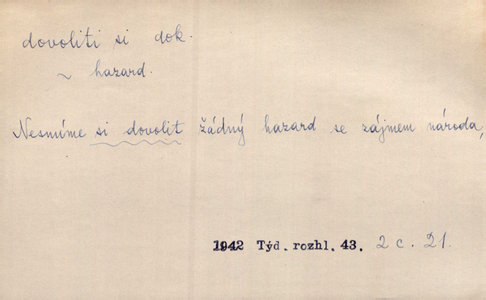 dovoliti si dok.
~ hazard.
Nesmíme si dovolit žádný hazard se zájmem národa,
1942 Týd. rozhl. 43. 2 c. 21.